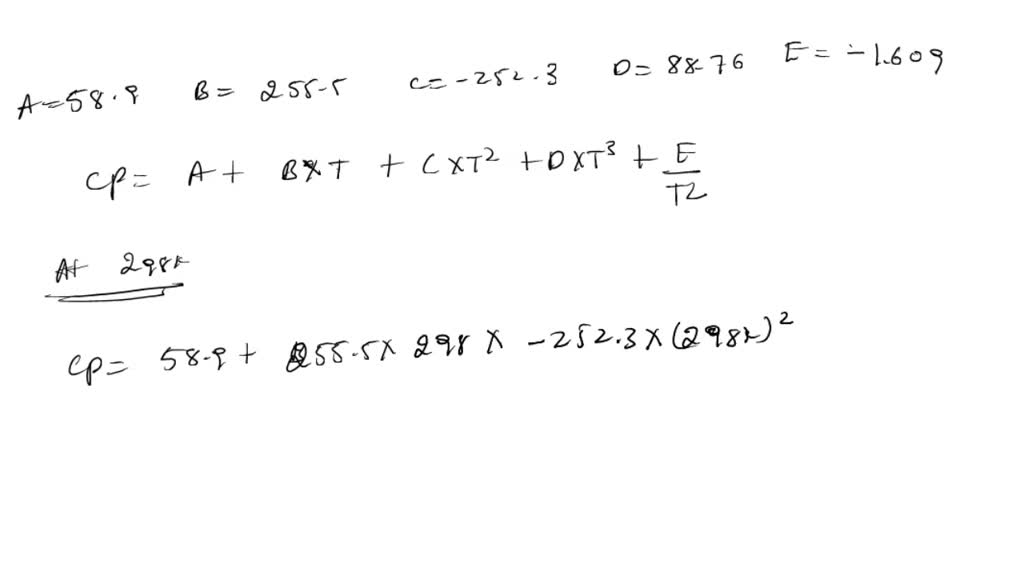 A=58.9 B= 255.5 C=-252.3 D= 88.76 E= -1.609
CP= A+ B×T + C×T² + D×T³ + E/T2
At 298k
CP= 58.9+ 255.5× 298 × -252.3×(298k)²